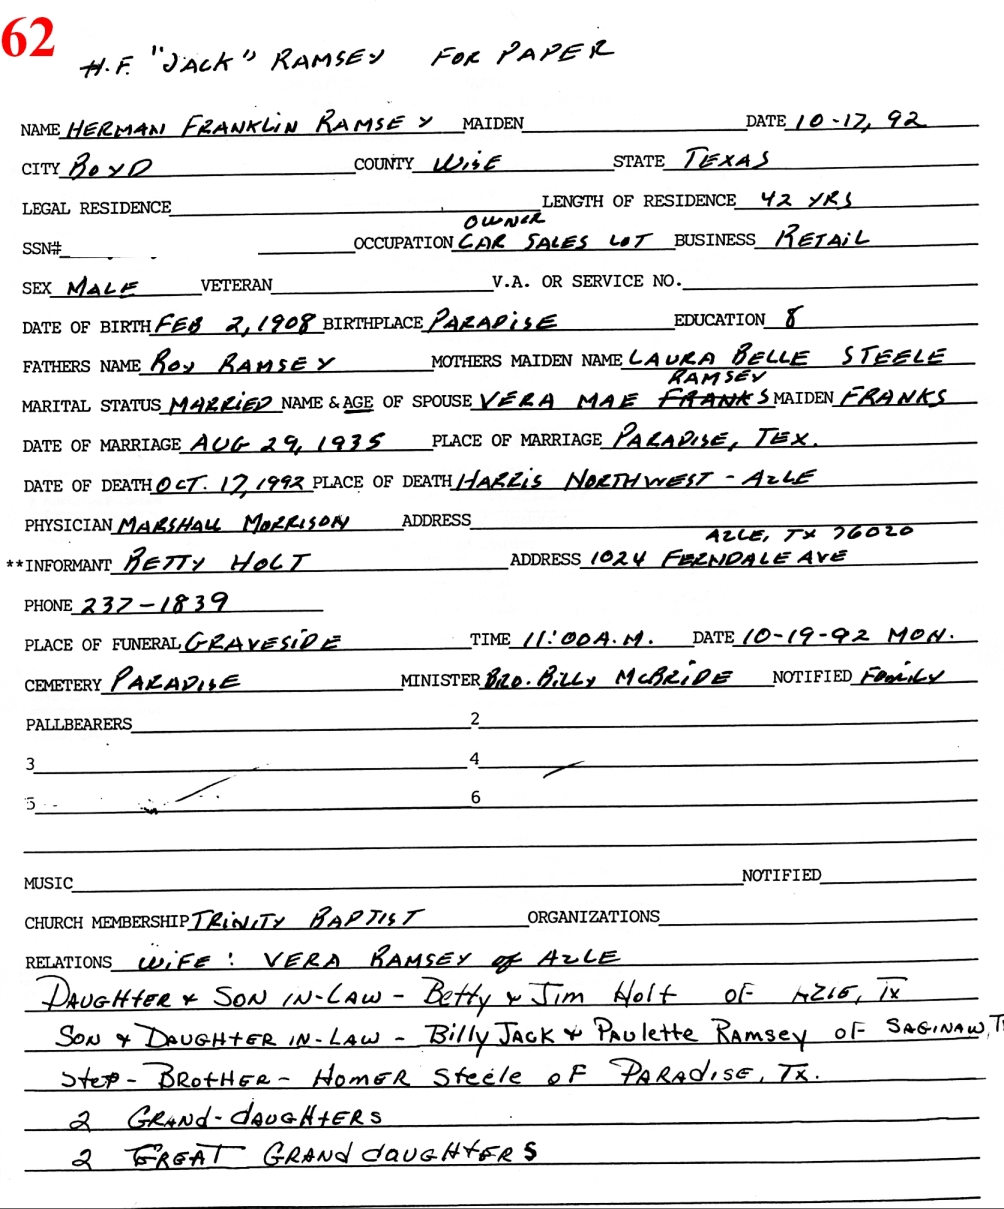 62
H.F. "JACK" RAMSEY FOR PAPER
NAME HERMAN FRANKLIN RAMSEY MAIDEN DATE 10-17, 92
CITY BOYD COUNTY WISE STATE TEXAS
LEGAL RESIDENCE LENGTH OF RESIDENCE 42 YRS
OWNER
SSN# OCCUPATION CAR SALES LOT BUSINESS RETAIL
SEX MALE VETERAN V.A. OR SERVICE NO.
DATE OF BIRTH FEB 2, 1908 BIRTHPLACE PARADISE EDUCATION 8
FATHERS NAME ROY RAMSEY MOTHERS MAIDEN NAME LAURA BELLE STEELE
RAMSEY
MARITAL STATUS MARRIED NAME & AGE OF SPOUSE VERA MAE FRANKS MAIDEN FRANKS
DATE OF MARRIAGE AUG 29, 1935 PLACE OF MARRIAGE PARADISE, TEX.
DATE OF DEATH OCT. 17, 1992 PLACE OF DEATH HARRIS NORTHWEST - AZLE
PHYSICIAN MARSHALL MORRISON ADDRESS
AZLE, TX 76020
**INFORMANT BETTY HOLT ADDRESS 1024 FERNDALE AVE
PHONE 237-1839
PLACE OF FUNERAL GRAVESIDE TIME 11:00 A.M. DATE 10-19-92 MON.
CEMETERY PARADISE MINISTER BRO. BILLY MCBRIDE NOTIFIED FAMILY
PALLBEARERS 2
3 4
5 6
MUSIC NOTIFIED
CHURCH MEMBERSHIP TRINITY BAPTIST ORGANIZATIONS
RELATIONS WIFE: VERA RAMSEY of AZLE
DAUGHTER & SON IN-LAW - Betty & Jim Holt OF AZLE, TX
SON & DAUGHTER IN-LAW - Billy JACK & Paulette Ramsey OF SAGINAW, T
Step - BROTHER - HOMER Steele OF PARADISE, TX.
2 GRAND-daUGHTERS
2 GREAT GRAND daUGHTERS